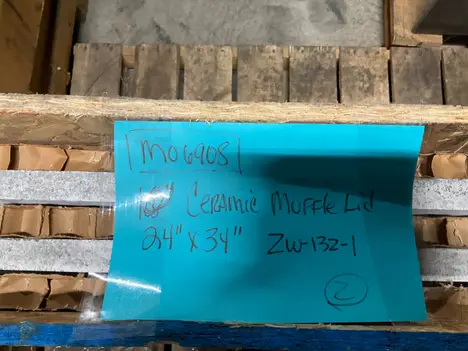 MO6908
Ceramic Muffle Lid
24" x 34" ZW-132-1
2